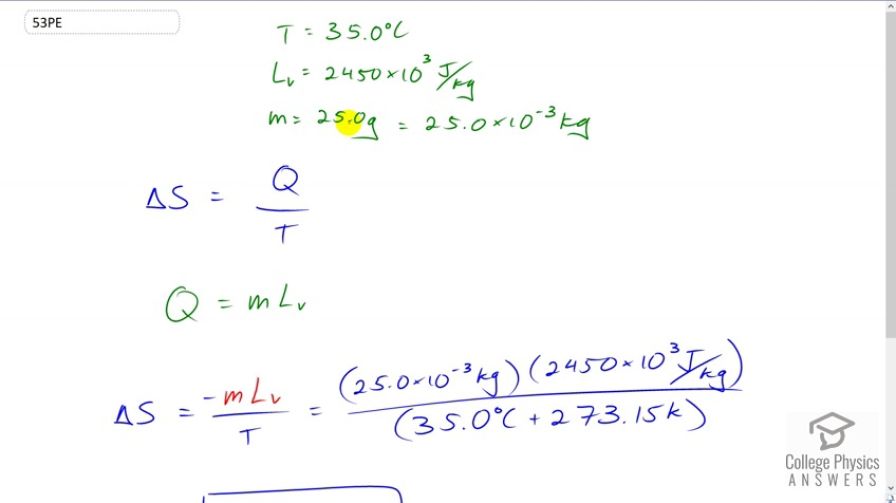 53PE
T = 35.0°C
Lᵥ = 2450×10³ J/kg
m = 25.0g = 25.0×10⁻³ kg
ΔS = Q/T
Q = mLᵥ
ΔS = -mLᵥ/T = (25.0×10⁻³ kg)(2450×10³ J/kg)/(35.0°C + 273.15K)
College Physics
ANSWERS